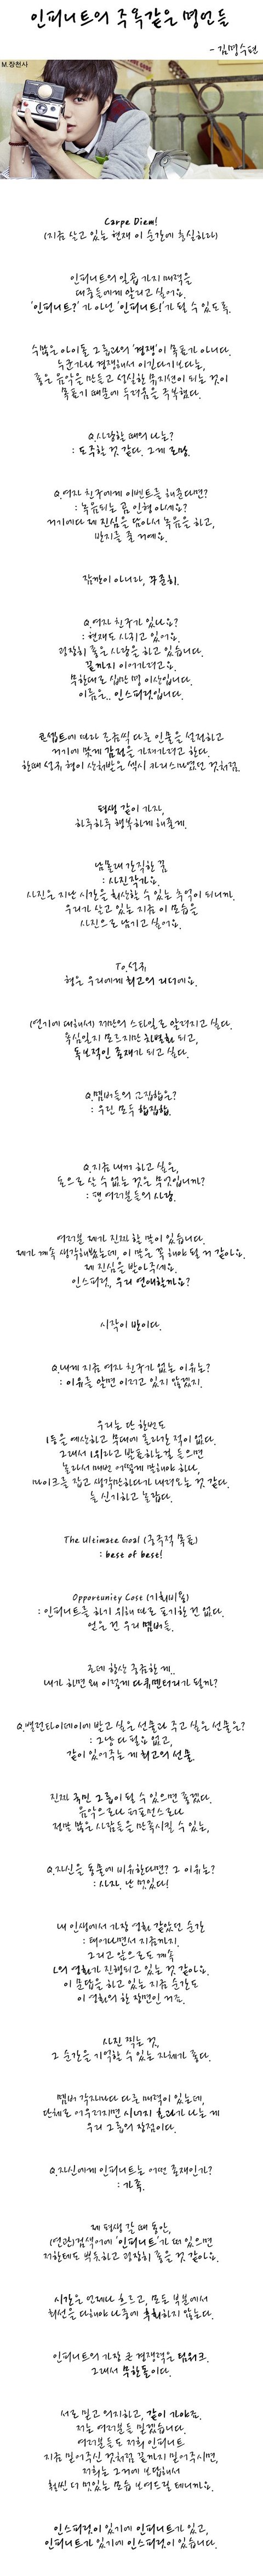 인피니트의 주옥같은 명언들
- 김명수편
M.장천사
Carpe Diem!
(지금 살고 있는 현재 이 순간에 충실하라)
인피니트의 일곱 가지 매력을
대중들에게 알리고 싶어요.
'인피니트?' 가 아닌 '인피니트!'가 될 수 있도록.
수많은 아이돌 그룹과의 '경쟁'이 목표가 아니다.
누군가와 경쟁해서 이긴다기보다는,
좋은 음악을 만들고 성실한 뮤지션이 되는 것이
목표기 때문에 두려움은 극복했다.
Q.사랑할 때의 나는?
: 도주할 것 같다. 그게 로망.
Q.여자 친구에게 이벤트를 해준다면?
: 녹음되는 곰 인형 아세요?
거기에다 제 진심을 담아서 녹음을 하고,
반지를 줄 거예요.
잠깐이 아니라, 꾸준히.
Q.여자 친구가 있나요?
: 현재도 사귀고 있어요.
굉장히 좋은 사랑을 하고 있습니다.
끝까지 이어가려고요.
무한대로 십만 명 이상입니다.
이름은.. 인스피릿입니다.
콘셉트에 따라 조금씩 다른 인물을 설정하고
거기에 맞게 감정을 가져가려고 한다.
한때 성규 형이 상처받은 섹시 카리스마였던 것처럼.
평생 같이 가자,
하루하루 행복하게 해줄게.
남몰래 간직한 꿈
: 사진작가요.
사진은 지난 시간을 회상할 수 있는 추억이 되니까.
우리가 살고 있는 지금 이 모습을
사진으로 남기고 싶어요.
To.성규
형은 우리에게 최고의 리더에요.
(연기에 대해서) 저만의 스타일로 알려지고 싶다.
욕심일지 모르지만 차별화 되고,
독보적인 존재가 되고 싶다.
Q.멤버들의 고집합은?
: 우린 모두 합집합.
Q.지금 내가 하고 싶은,
돈으로 살 수 없는 것은 무엇입니까?
: 팬 여러분들의 사랑.
여러분 제가 진짜 할 말이 있습니다.
제가 계속 생각해봤는데, 이 말은 꼭 해야 될 거 같아요.
제 진심을 받아주세요.
인스피릿, 우리 연애할까요?
시작이 반이다.
Q.내게 지금 여자 친구가 없는 이유는?
: 이유를 알면 이러고 있지 않겠지.
우리는 단 한번도
1등을 예상하고 무대에 올라간 적이 없다.
그래서 1위라고 발표하는걸 들으면
놀라서 매번 어떻게 말해야 하나,
마이크를 잡고 생각만하다가 내려오는 것 같다.
늘 신기하고 놀랍다.
The Ultimate Goal (궁극적 목표)
: best of best!
Opportunity Cost (기회비용)
: 인피니트를 하기 위해 따로 포기한 건 없다.
얻은 건 우리 멤버들.
근데 항상 궁금한 게..
내가 하면 왜 이렇게 다큐멘터리가 될까?
Q.발렌타이데이에 받고 싶은 선물과 주고 싶은 선물은?
: 그냥 다 필요 없고,
같이 있어주는 게 최고의 선물.
진짜 국민 그룹이 될 수 있으면 좋겠다.
음악으로나 퍼포먼스로나
정말 많은 사람들을 만족시킬 수 있는,
Q.자신을 동물에 비유한다면? 그 이유는?
: 사자. 난 멋있다!
내 인생에서 가장 영화 같았던 순간
: 태어나면서 지금까지.
그리고 앞으로도 계속
L의 영화가 진행되고 있는 것 같아요.
이 문답을 하고 있는 지금 순간도
이 영화의 한 장면인 거죠.
사진 찍는 것,
그 순간을 기억할 수 있는 자체가 좋다.
멤버 각자마다 다른 매력이 있는데,
단체로 어우러지면 시너지 효과가 나는 게
우리 그룹의 장점이다.
Q.자신에게 인피니트는 어떤 존재인가?
: 가족.
제 평생 갈 때 동안,
(연관)검색어에 '인피니트'가 떠 있으면
저한테도 뿌듯하고 굉장히 좋을 것 같아요.
시간은 언제나 흐르고, 모든 부분에서
최선을 다해야 나중에 후회하지 않는다.
인피니트의 가장 큰 경쟁력은 팀워크.
그래서 무한돌이다.
서로 믿고 의지하고, 같이 가야죠.
저는 여러분들을 믿겠습니다.
여러분들도 저희 인피니트
지금 믿어주신 것처럼 끝까지 믿어주시면,
저희는 그거에 보답해서
훨씬 더 멋있는 모습 보여드릴 테니까요.
인스피릿이 있기에 인피니트가 있고,
인피니트가 있기에 인스피릿이 있습니다.